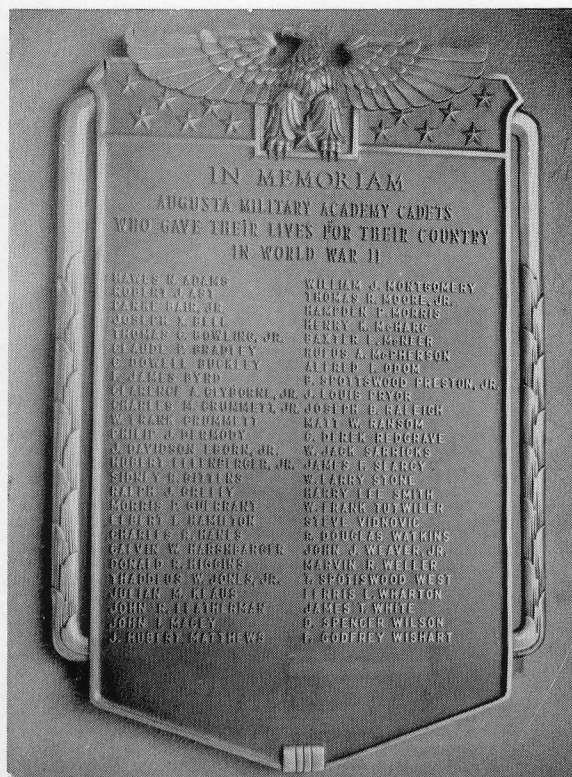 IN MEMORIAM
AUGUSTA MILITARY ACADEMY CADETS
WHO GAVE THEIR LIVES FOR THEIR COUNTRY
IN WORLD WAR II
HAWES N. ADAMS
ROBERT J. AST
BAIR, JR.
JOSEPH X. BELL
THOMAS G. BOWLING, JR.
CLAUDE P. BRADLEY
C. DOWELL BUCKLEY
JAMES BYRD
CLARENCE A. CLYBORNE, JR.
CHARLES M. CRUMMETT, JR.
W. FRANK CRUMMETT
PHILIP J. DERMODY
J. DAVIDSON EBORN, JR.
HUBERT ELLENBERGER, JR.
SIDNEY R. GITTENS
RALPH J. GREELY
MORRIS P. GUERRANT
ELBERT T. HAMILTON
CHARLES R. HANES
GALVIN W. HARSHBARGER
DONALD R. HIGGINS
THADDEUS W. JONES, JR.
JULIAN M. KLAUS
JOHN R. LEATHERMAN
JOHN MACEY
J. HUBERT MATTHEWS
WILLIAM J. MONTGOMERY
THOMAS R. MOORE, JR.
HAMPDEN P. MORRIS
HENRY K. McHARG
BAXTER L. McNEER
RUFUS A. McPHERSON
ALFRED L. ODOM
B. SPOTTSWOOD PRESTON, JR.
J. LOUIS PRYOR
JOSEPH B. RALEIGH
MATT W. RANSOM
C. DEREK REDGRAVE
W. JACK SARRICKS
JAMES F. SEARCY
W. LARRY STONE
HARRY LEE SMITH
W. FRANK TUTWILER
STEVE VIDNOVIC
R. DOUGLAS WATKINS
JOHN J. WEAVER, JR.
MARVIN R. WELLER
T. SPOTISWOOD WEST
FERRIS L. WHARTON
JAMES T. WHITE
D. SPENCER WILSON
L. GODFREY WISHART